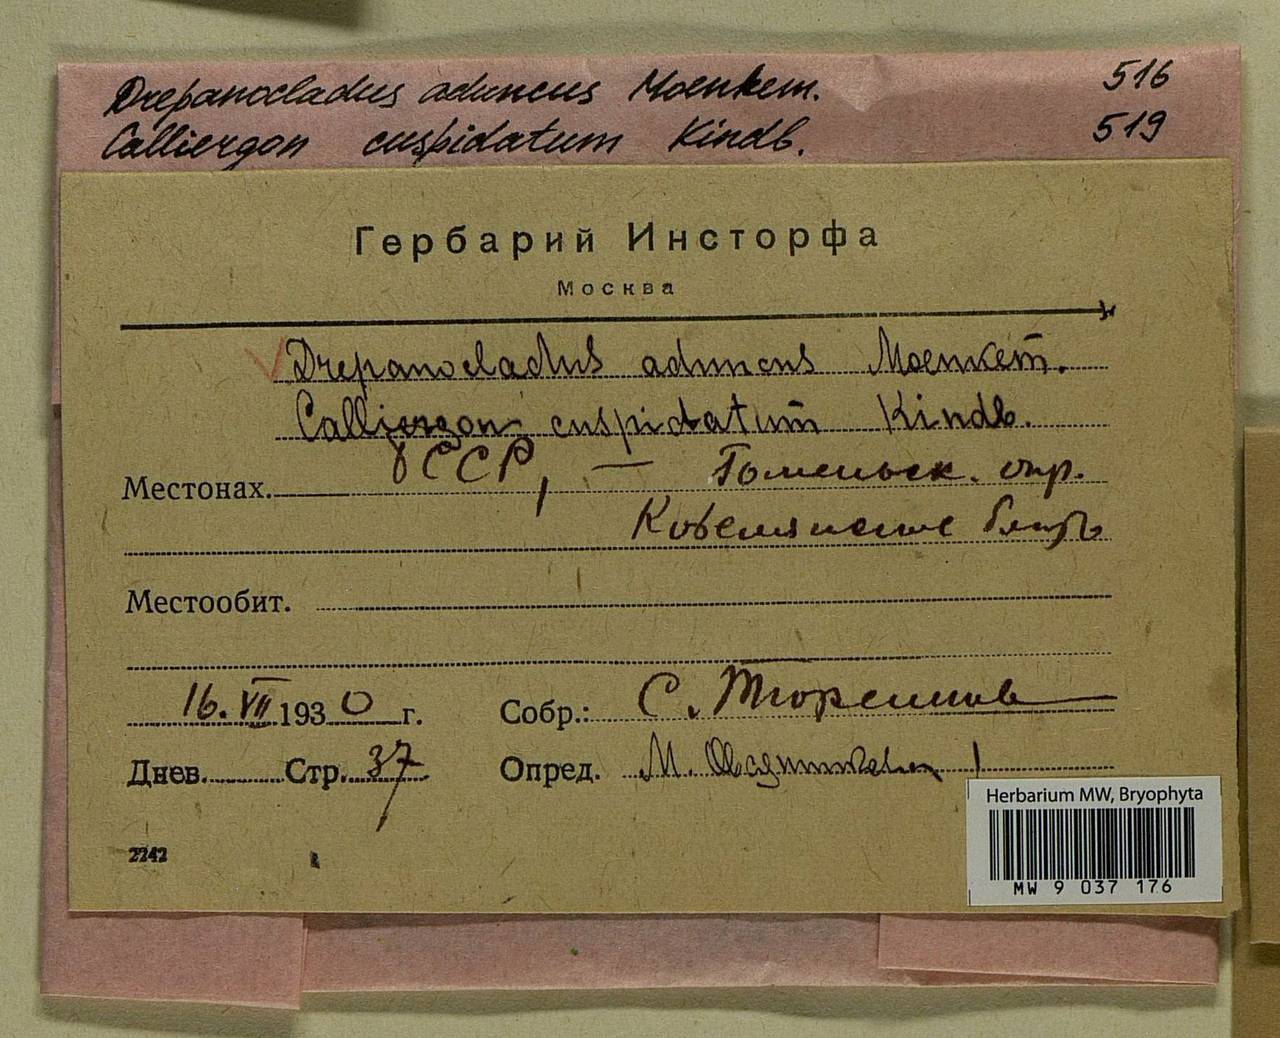 Drepanocladus aduncus Moenkem. 516
Calliergon cuspidatum Kindb. 519
Гербарий Инсторфа
Москва
Drepanocladus aduncus Moenkem̄.
Calliergon cuspidatum̄ Kindb.
Местонах. БССР, — Гомельск. окр.
Местообит.
16.VII 1930 г. Собр.: С. Тюремнов
Днев. Стр. 37 Опред. М.
2242
Herbarium MW, Bryophyta
MW 9 037 176